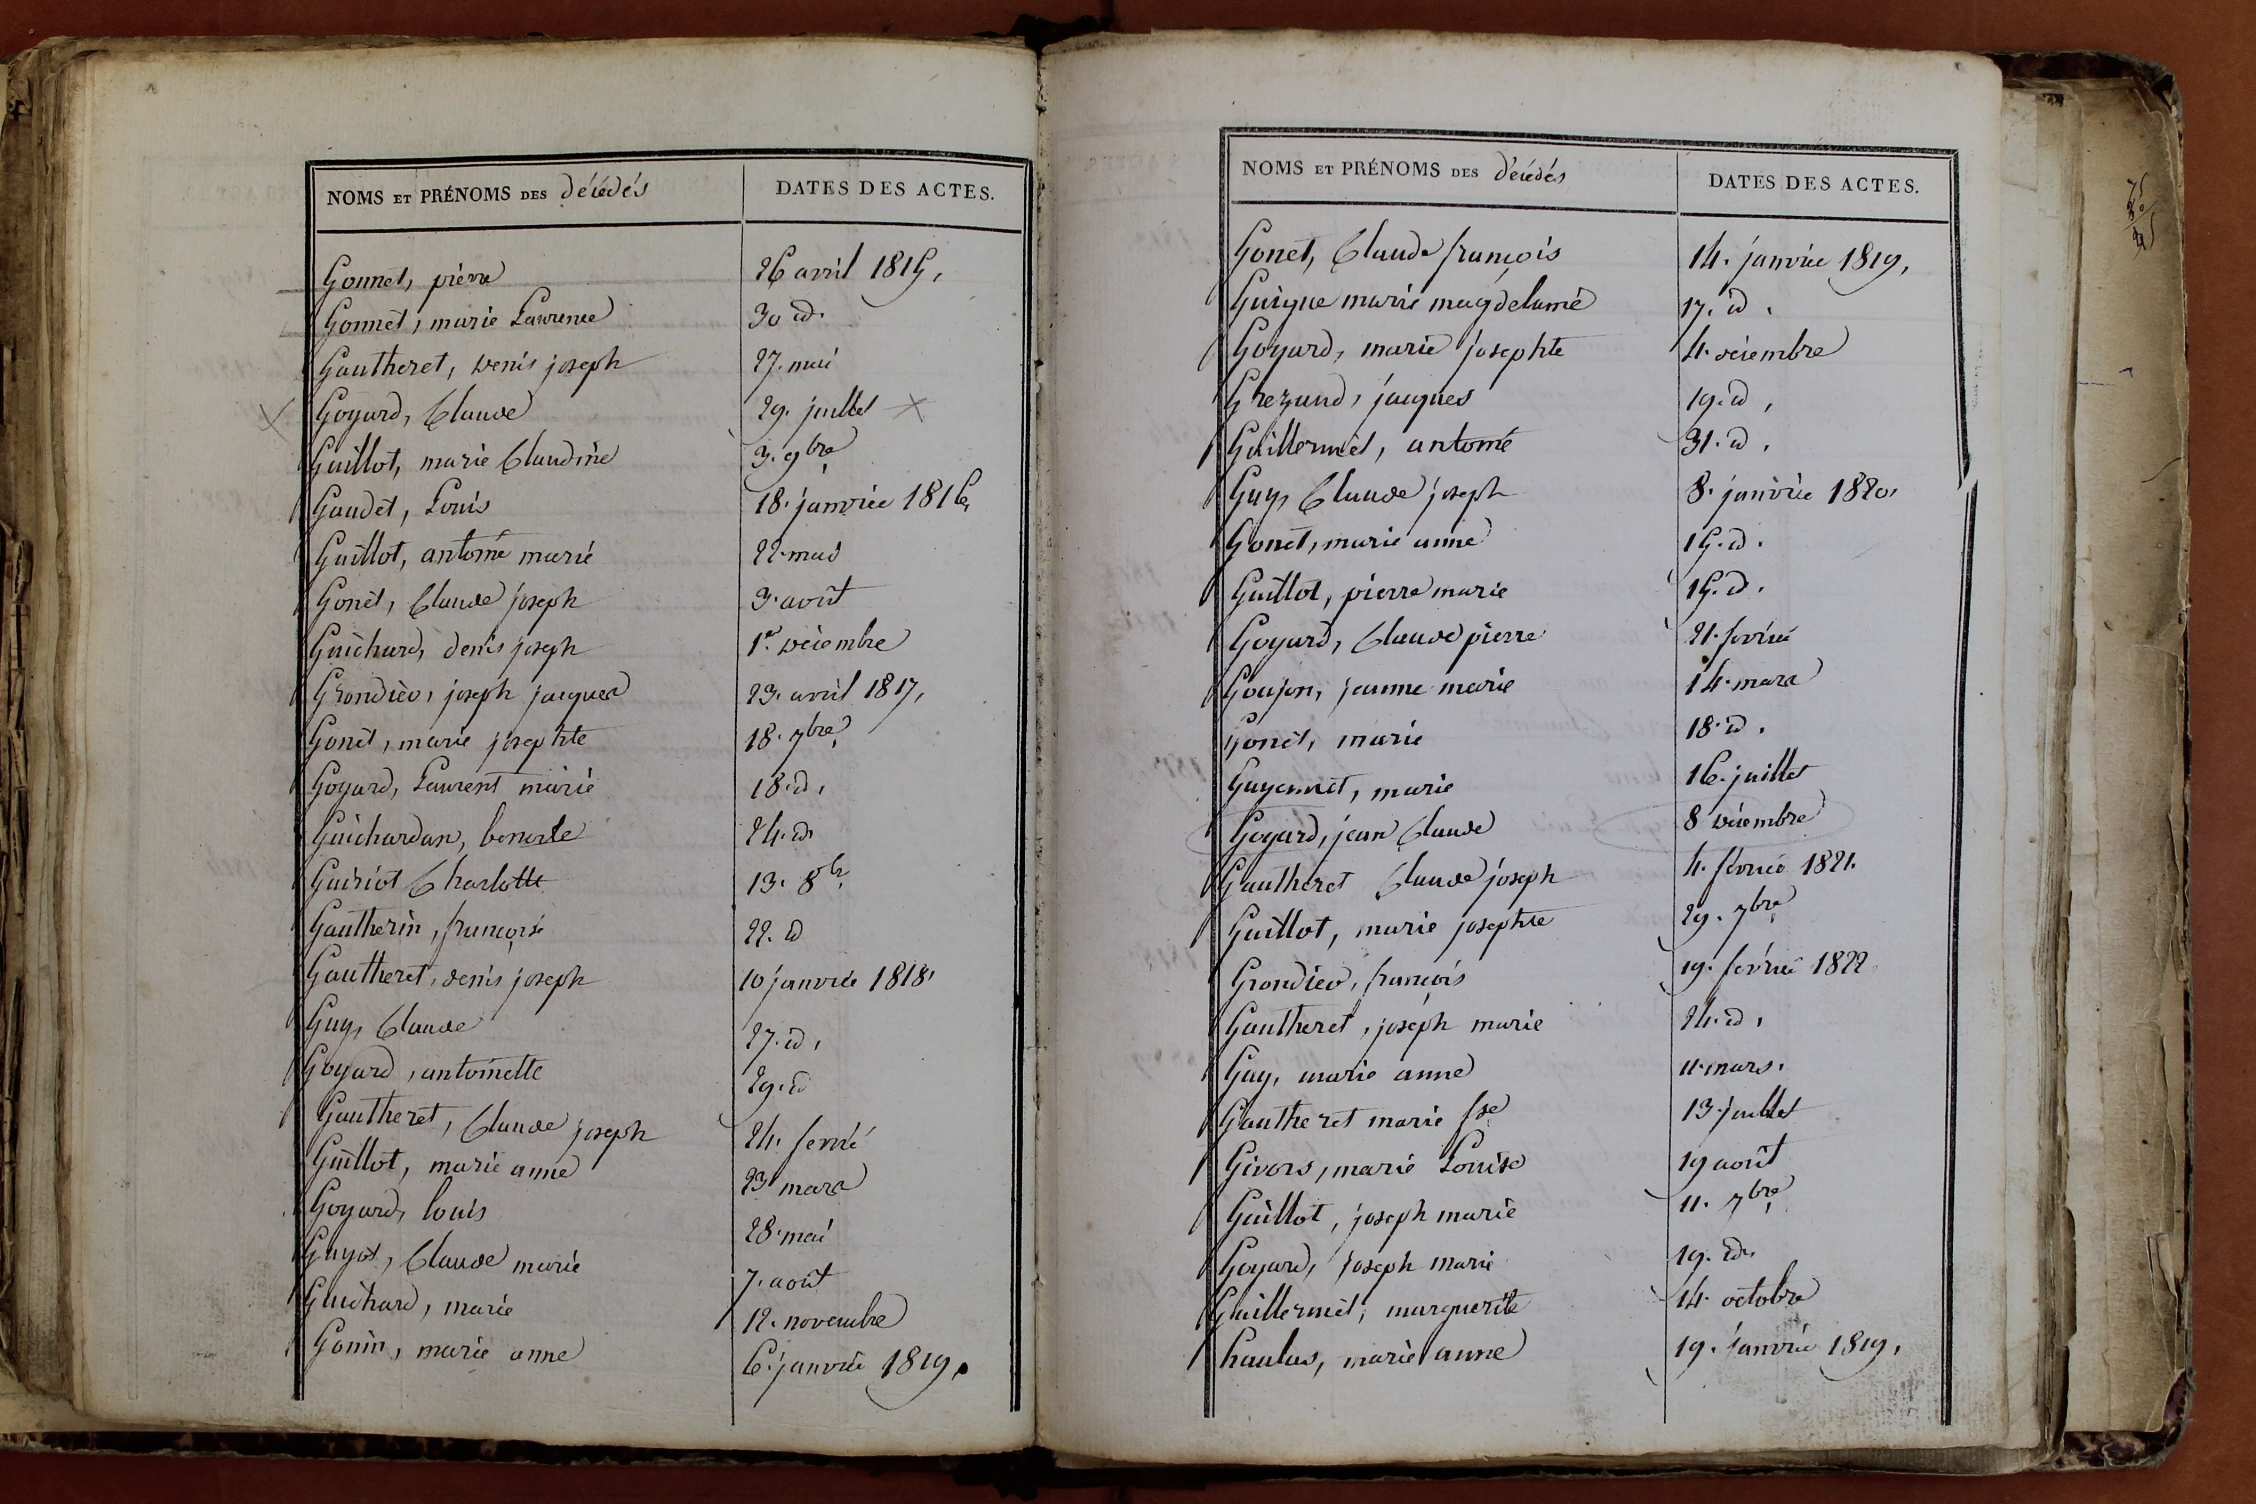 NOMS ET PRÉNOMS DES décédés DATES DES ACTES.
Gonnet, pierre 26 avril 1815,
Gonnet, marie Laurence 30 id.
Gautheret, denis joseph 27. mai
Goyard, Claude 29. juillet
Guillot, marie Claudine 3. 9bre
Gaudet, Louis 18. janvier 1816,
Guillot, antoine marie 22. mai
Gonet, Claude joseph 3. août
Guichard, denis joseph 1er décembre
Grondieo, joseph jacques 23. avril 1817,
Gonet, marie josephte 18. 7bre
Goyard, Laurent marie 18. id,
Guichardan, benoite 24. id
Guiriot Charlotte 13. 8br
Gautherin, françoise 22. id
Gautheret, denis joseph 10 janvier 1818,
Guy, Claude 27. id,
Goyard, antoinette 29. id
Gautheret, Claude joseph 24. fevrié
Guillot, marie anne 23 mars
Goyard, louis 28. mai
Guyot, Claude marie 7. août
Guichard, marie 12. novembre
Gonin, marie anne 6. janvier 1819,
NOMS ET PRÉNOMS DES décédés DATES DES ACTES.
Gonet, Claude françois 14. janvier 1819,
Guigue marie magdelaine 17. id,
Goyard, marie josephte 4. décembre
Grezand, jacques 19. id,
Guillermet, antoine 31. id,
Guy, Claude joseph 8. janvier 1820,
Gonet, marie anne 15. id.
Guillot, pierre marie 15. id.
Goyard, Claude pierre 21. fevrié
Goujon, jeanne marie 14. mars
Gonet, marie 18. id.
Guyennet, marie 16. juillet
Goyard, jean Claude 8 décembre
Gautheret Claude joseph 4. février 1821.
Guillot, marie josephte 29. 7bre
Grondieo, françois 19. fevrié 1822
Gautheret, joseph marie 24. id,
Guy, marie anne 11. mars.
Gautheret marie fse 13. juillet
Givors, marie Louise 19 août
Guillot, joseph marie 11. 7bre
Goyard, joseph marie 19. id,
Guillermet, marguerite 14. octobre
hanlus, marie anne 19. janvier 1819,